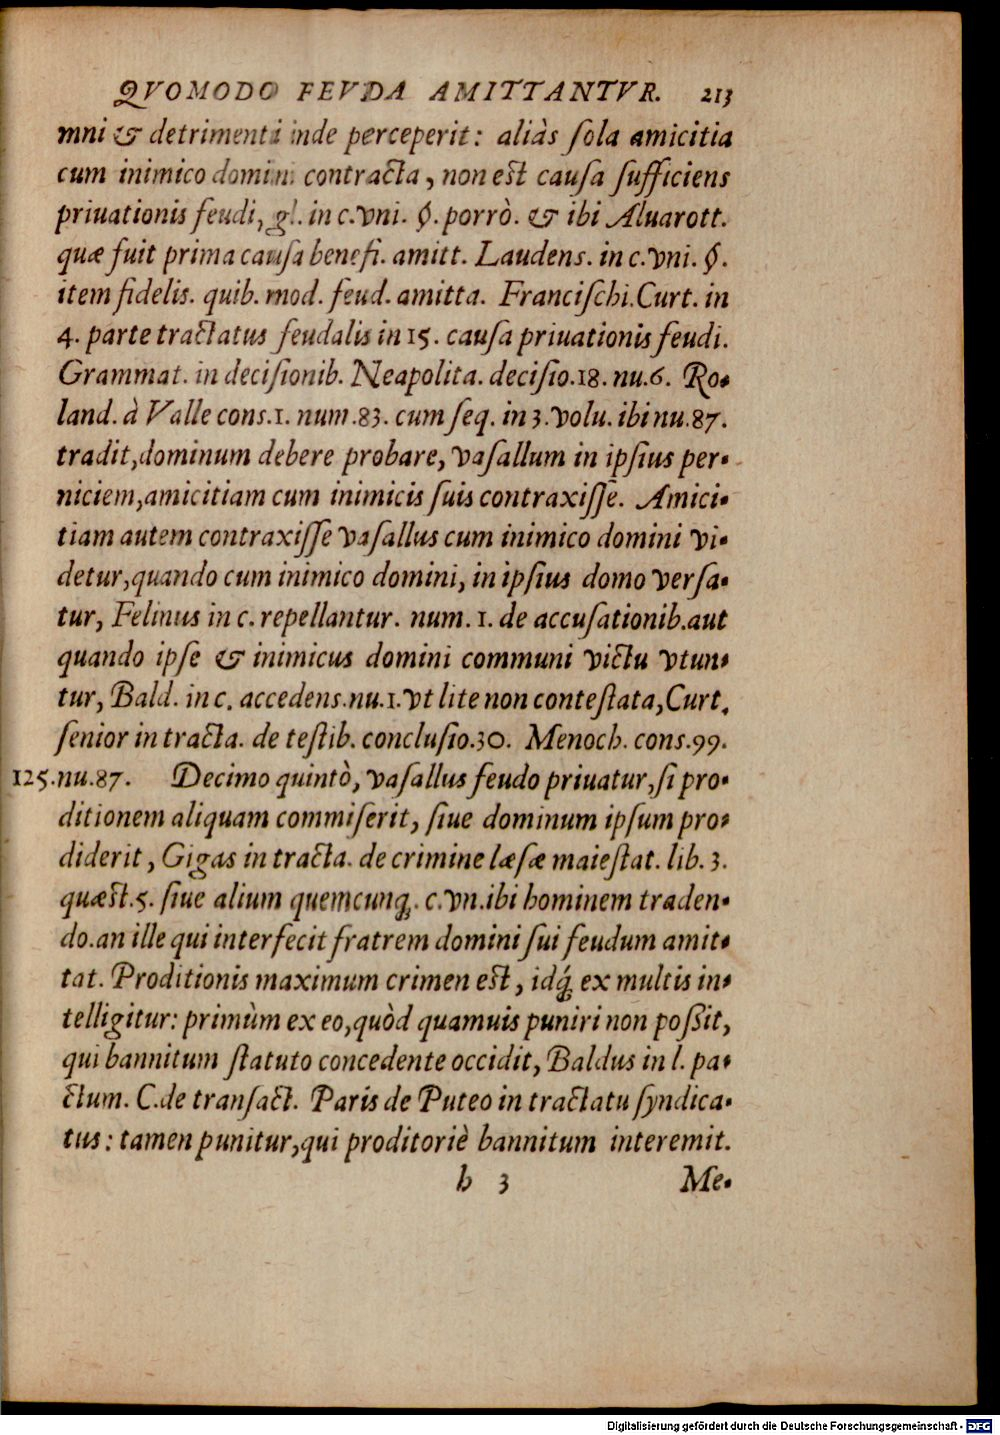 QVOMODO FEVDA AMITTANTVR. 213
mni & detrimenti inde perceperit: aliàs ſola amicitia
cum inimico domini contracta, non eſt cauſa ſufficiens
priuationis feudi, gl. in c. vni. §. porrò. & ibi Aluarott.
quæ fuit prima cauſa benefi. amitt. Laudens. in c. vni. §.
item fidelis. quib. mod. feud. amitta. Franciſchi. Curt. in
4. parte tractatus feudalis in 15. cauſa priuationis feudi.
Grammat. in deciſionib. Neapolita. deciſio. 18. nu. 6. Ro-
land. à Valle cons. 1. num. 83. cum ſeq. in 3. volu. ibi nu. 87.
tradit, dominum debere probare, vaſallum in ipſius per-
niciem, amicitiam cum inimicis ſuis contraxiſſē. Amici-
tiam autem contraxiſſe vaſallus cum inimico domini vi-
detur, quando cum inimico domini, in ipſius domo verſa-
tur, Felinus in c. repellantur. num. 1. de accuſationib. aut
quando ipſe & inimicus domini communi victu vtun-
tur, Bald. in c. accedens. nu. 1. vt lite non conteſtata, Curt.
ſenior in tracta. de teſtib. concluſio. 30. Menoch. cons. 99.
125. nu. 87. Decimo quintò, vaſallus feudo priuatur, ſi pro-
ditionem aliquam commiſerit, ſiue dominum ipſum pro-
diderit, Gigas in tracta. de crimine læſæ maieſtat. lib. 3.
quæſt. 5. ſiue alium quemcunq;. c. vn. ibi hominem traden-
do. an ille qui interfecit fratrem domini ſui feudum amit-
tat. Proditionis maximum crimen eſt, idq́; ex multis in-
telligitur: primùm ex eo, quòd quamuis puniri non poßit,
qui bannitum ſtatuto concedente occidit, Baldus in l. pa-
ctum. C. de tranſact. Paris de Puteo in tractatu ſyndica-
tus: tamen punitur, qui proditoriè bannitum interemit.
h 3 Me-
Digitalisierung gefördert durch die Deutsche Forschungsgemeinschaft - DFG